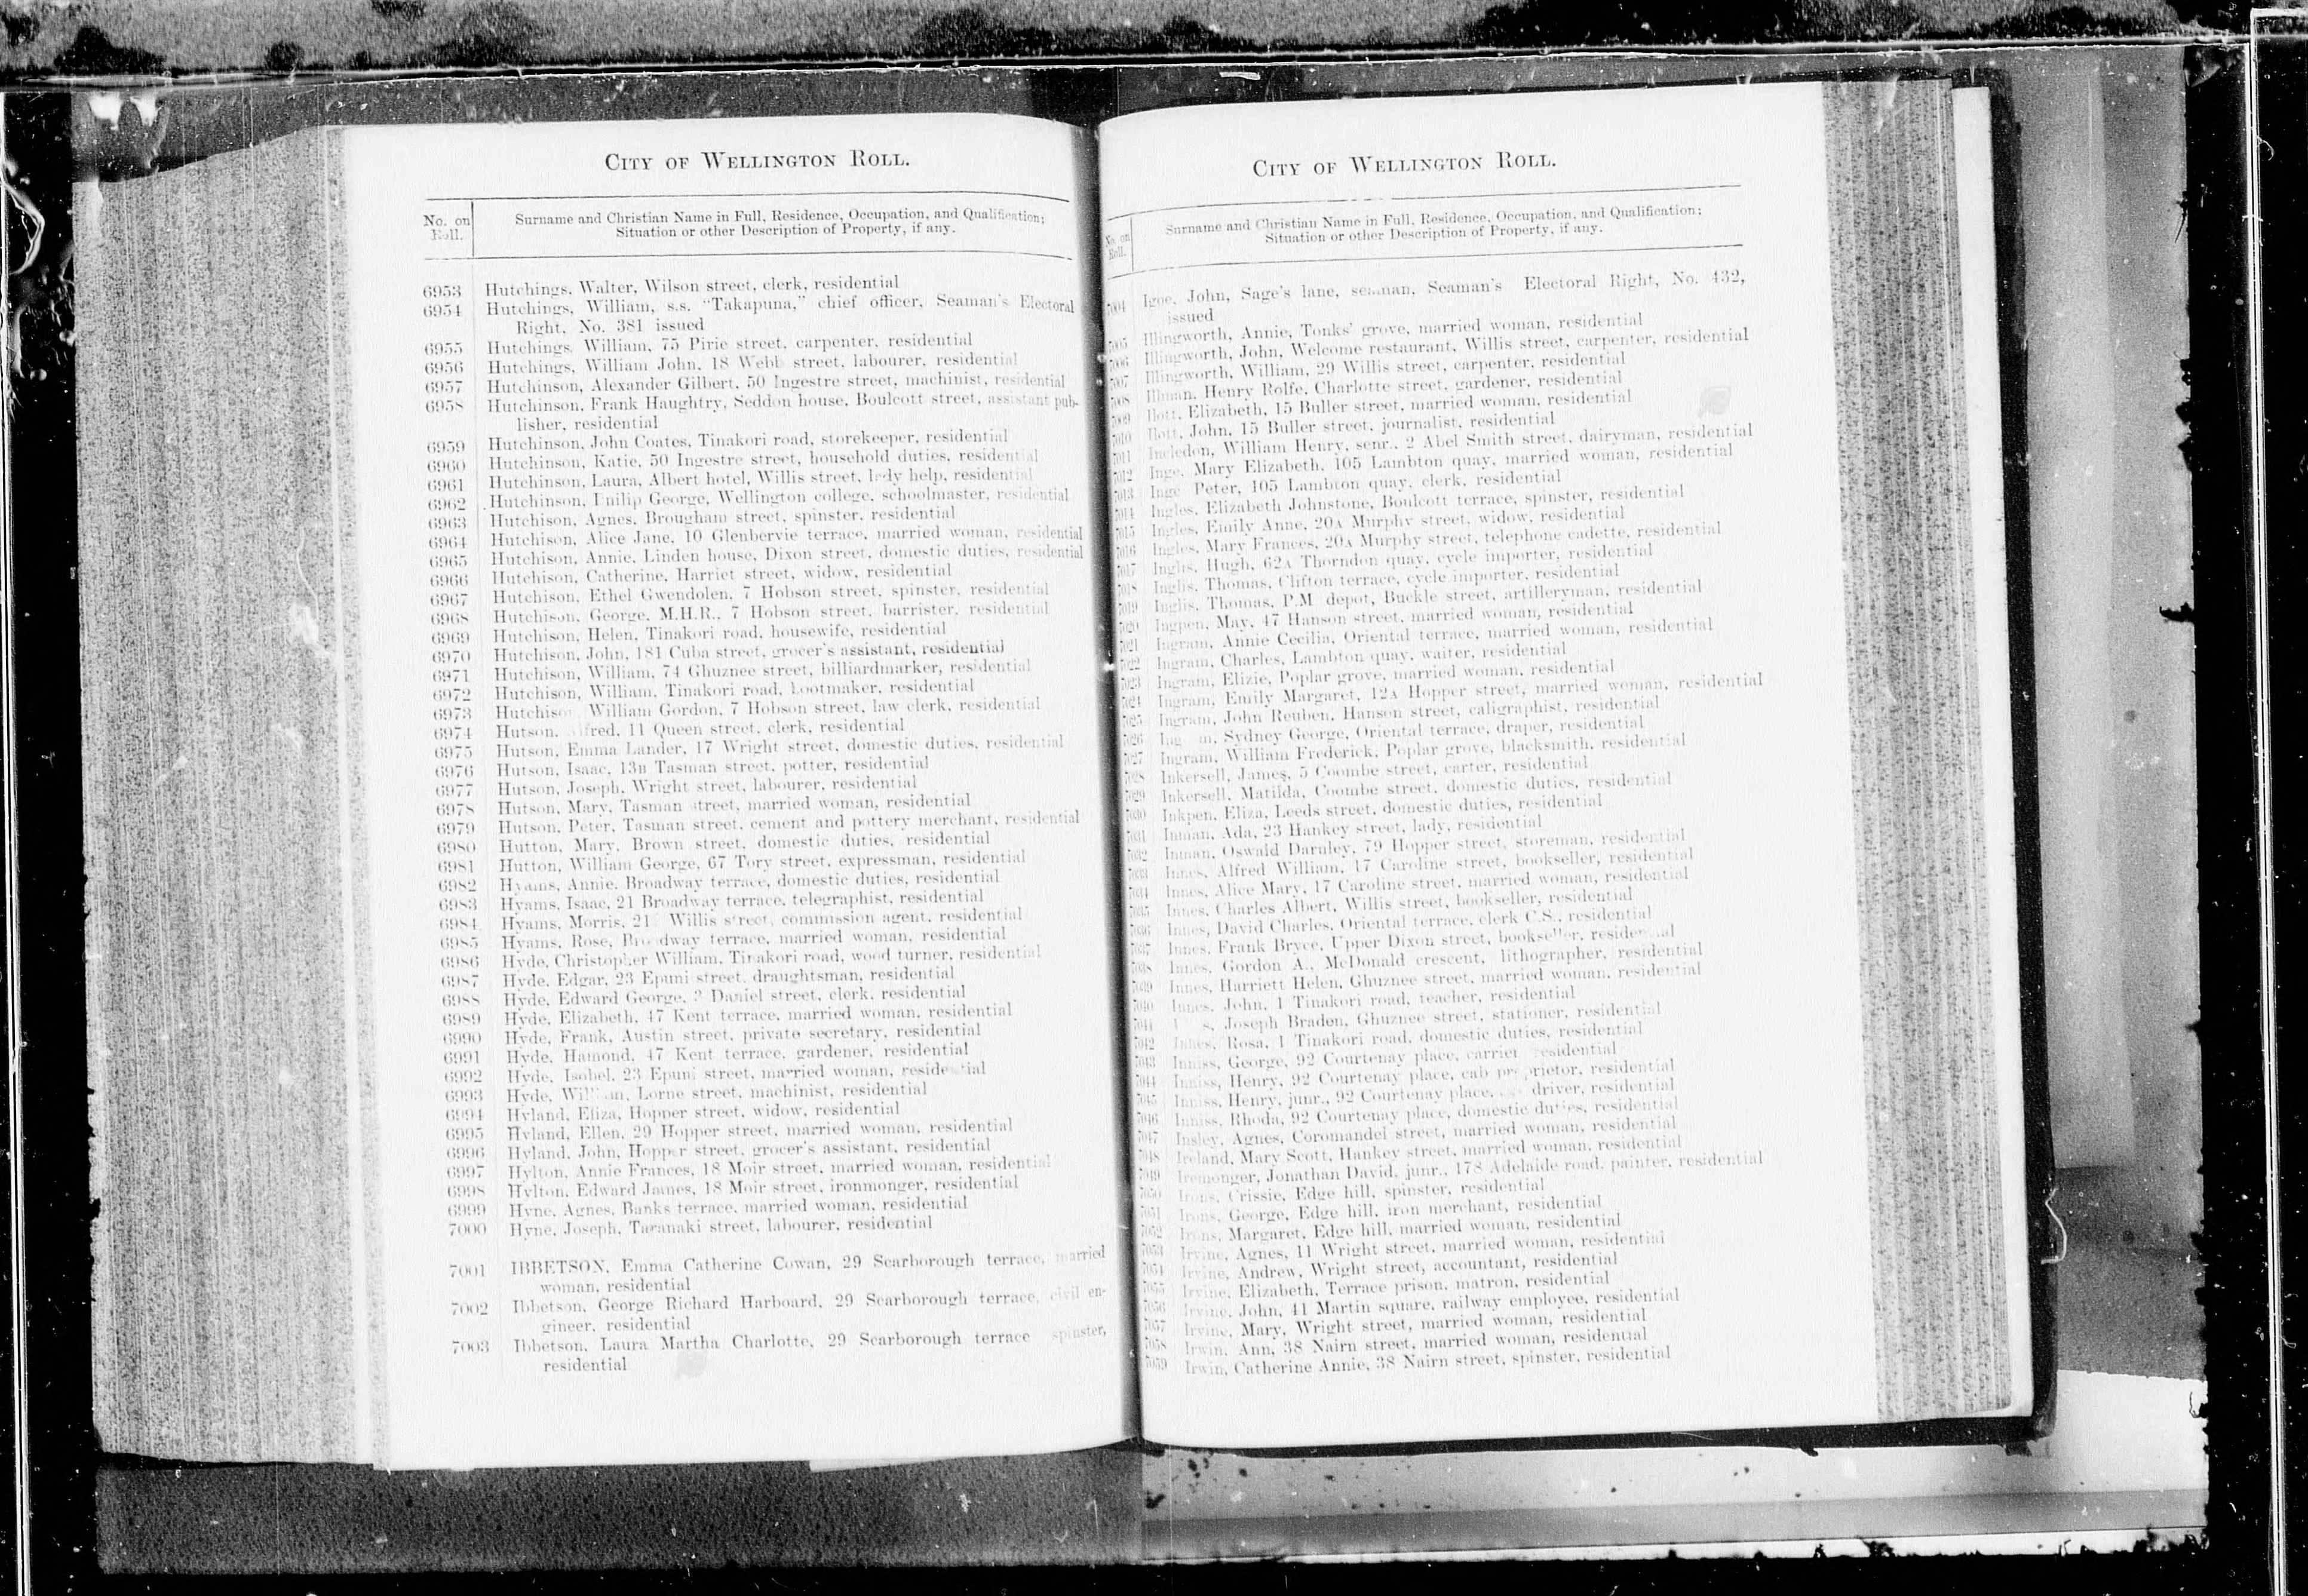 CITY OF WELLINGTON ROLL.
No. on Roll.
Surname and Christian Name in Full, Residence, Occupation, and Qualification;
Situation or other Description of Property, if any.
6953 Hutchings, Walter, Wilson street, clerk, residential
6954 Hutchings, William, s.s. "Takapuna," chief officer, Seaman's Electoral
Right, No. 381 issued
6955 Hutchings, William, 75 Pirie street, carpenter, residential
6956 Hutchings, William John, 18 Webb street, labourer, residential
6957 Hutchinson, Alexander Gilbert, 50 Ingestre street, machinist, residential
6958 Hutchinson, Frank Haughtry, Seddon house, Boulcott street, assistant pub-
lisher, residential
6959 Hutchinson, John Coates, Tinakori road, storekeeper, residential
6960 Hutchinson, Katie, 50 Ingestre street, household duties, residential
6961 Hutchinson, Laura, Albert hotel, Willis street, lady help, residential
6962 Hutchinson, Philip George, Wellington college, schoolmaster, residential
6963 Hutchison, Agnes, Brougham street, spinster, residential
6964 Hutchison, Alice Jane, 10 Glenbervie terrace, married woman, residential
6965 Hutchison, Annie, Linden house, Dixon street, domestic duties, residential
6966 Hutchison, Catherine, Harriet street, widow, residential
6967 Hutchison, Ethel Gwendolen, 7 Hobson street, spinster, residential
6968 Hutchison, George, M.H.R., 7 Hobson street, barrister, residential
6969 Hutchison, Helen, Tinakori road, housewife, residential
6970 Hutchison, John, 181 Cuba street, grocer's assistant, residential
6971 Hutchison, William, 74 Ghuznee street, billiardmarker, residential
6972 Hutchison, William, Tinakori road, bootmaker, residential
6973 Hutchison, William Gordon, 7 Hobson street, law clerk, residential
6974 Hutson, Alfred, 11 Queen street, clerk, residential
6975 Hutson, Emma Lander, 17 Wright street, domestic duties, residential
6976 Hutson, Isaac, 13B Tasman street, potter, residential
6977 Hutson, Joseph, Wright street, labourer, residential
6978 Hutson, Mary, Tasman street, married woman, residential
6979 Hutson, Peter, Tasman street, cement and pottery merchant, residential
6980 Hutton, Mary, Brown street, domestic duties, residential
6981 Hutton, William George, 67 Tory street, expressman, residential
6982 Hyams, Annie, Broadway terrace, domestic duties, residential
6983 Hyams, Isaac, 21 Broadway terrace, telegraphist, residential
6984 Hyams, Morris, Willis street, commission agent, residential
6985 Hyams, Rose, Broadway terrace, married woman, residential
6986 Hyde, Christopher William, Tinakori road, wood turner, residential
6987 Hyde, Edgar, 23 Epuni street, draughtsman, residential
6988 Hyde, Edward George, Daniel street, clerk, residential
6989 Hyde, Elizabeth, 47 Kent terrace, married woman, residential
6990 Hyde, Frank, Austin street, private secretary, residential
6991 Hyde, Hamond, 47 Kent terrace, gardener, residential
6992 Hyde, Isobel, 23 Epuni street, married woman, residential
6993 Hyde, William, Lorne street, machinist, residential
6994 Hyland, Eliza, Hopper street, widow, residential
6995 Hyland, Ellen, 29 Hopper street, married woman, residential
6996 Hyland, John, Hopper street, grocer's assistant, residential
6997 Hylton, Annie Frances, 18 Moir street, married woman, residential
6998 Hylton, Edward James, 18 Moir street, ironmonger, residential
6999 Hyne, Agnes, Banks terrace, married woman, residential
7000 Hyne, Joseph, Taranaki street, labourer, residential
7001 IBBETSON, Emma Catherine Cowan, 29 Scarborough terrace, married
woman, residential
7002 Ibbetson, George Richard Harboard, 29 Scarborough terrace, civil en-
gineer, residential
7003 Ibbetson, Laura Martha Charlotte, 29 Scarborough terrace spinster,
residential
CITY OF WELLINGTON ROLL.
No. on Roll.
Surname and Christian Name in Full, Residence, Occupation, and Qualification;
Situation or other Description of Property, if any.
7004 Igoe, John, Sage's lane, seaman, Seaman's Electoral Right, No. 432,
issued
7005 Illingworth, Annie, Tonks' grove, married woman, residential
7006 Illingworth, John, Welcome restaurant, Willis street, carpenter, residential
7007 Illingworth, William, 29 Willis street, carpenter, residential
7008 Illman, Henry Rolfe, Charlotte street, gardener, residential
7009 Ilott, Elizabeth, 15 Buller street, married woman, residential
7010 Ilott, John, 15 Buller street, journalist, residential
7011 Incledon, William Henry, senr., 2 Abel Smith street, dairyman, residential
7012 Inge, Mary Elizabeth, 105 Lambton quay, married woman, residential
7013 Inge Peter, 105 Lambton quay, clerk, residential
7014 Ingles, Elizabeth Johnstone, Boulcott terrace, spinster, residential
7015 Ingles, Emily Anne, 20A Murphy street, widow, residential
7016 Ingles, Mary Frances, 20A Murphy street, telephone cadette, residential
7017 Inglis, Hugh, 62A Thorndon quay, cycle importer, residential
7018 Inglis, Thomas, Clifton terrace, cycle importer, residential
7019 Inglis, Thomas, P.M depot, Buckle street, artilleryman, residential
7020 Ingpen, May, 47 Hanson street, married woman, residential
7021 Ingram, Annie Cecilia, Oriental terrace, married woman, residential
7022 Ingram, Charles, Lambton quay, waiter, residential
7023 Ingram, Elizie, Poplar grove, married woman, residential
7024 Ingram, Emily Margaret, 12A Hopper street, married woman, residential
7025 Ingram, John Reuben, Hanson street, caligraphist, residential
7026 Ingram, Sydney George, Oriental terrace, draper, residential
7027 Ingram, William Frederick, Poplar grove, blacksmith, residential
7028 Inkersell, James, 5 Coombe street, carter, residential
7029 Inkersell, Matilda, Coombe street, domestic duties, residential
7030 Inkpen, Eliza, Leeds street, domestic duties, residential
7031 Inman, Ada, 23 Hankey street, lady, residential
7032 Inman, Oswald Darnley, 79 Hopper street, storeman, residential
7033 Innes, Alfred William, 17 Caroline street, bookseller, residential
7034 Innes, Alice Mary, 17 Caroline street, married woman, residential
7035 Innes, Charles Albert, Willis street, bookseller, residential
7036 Innes, David Charles, Oriental terrace, clerk C.S., residential
7037 Innes, Frank Bryce, Upper Dixon street, bookseller, residential
7038 Innes, Gordon A., McDonald crescent, lithographer, residential
7039 Innes, Harriett Helen, Ghuznee street, married woman, residential
7040 Innes, John, 1 Tinakori road, teacher, residential
7041 Joseph Braden, Ghuznee street, stationer, residential
7042 Innes, Rosa, 1 Tinakori road, domestic duties, residential
7043 Inniss, George, 92 Courtenay place, carrier residential
7044 Inniss, Henry, 92 Courtenay place, cab proprietor, residential
7045 Inniss, Henry, junr., 92 Courtenay place, driver, residential
7046 Inniss, Rhoda, 92 Courtenay place, domestic duties, residential
7047 Insley, Agnes, Coromandel street, married woman, residential
7048 Ireland, Mary Scott, Hankey street, married woman, residential
7049 Iremonger, Jonathan David, junr., 178 Adelaide road, painter, residential
7050 Irons, Crissie, Edge hill, spinster, residential
7051 Irons, George, Edge hill, iron merchant, residential
7052 Irons, Margaret, Edge hill, married woman, residential
7053 Irvine, Agnes, 11 Wright street, married woman, residential
7054 Irvine, Andrew, Wright street, accountant, residential
7055 Irvine, Elizabeth, Terrace prison, matron, residential
7056 Irvine, John, 41 Martin square, railway employee, residential
7057 Irvine, Mary, Wright street, married woman, residential
7058 Irwin, Ann, 38 Nairn street, married woman, residential
7059 Irwin, Catherine Annie, 38 Nairn street, spinster, residential